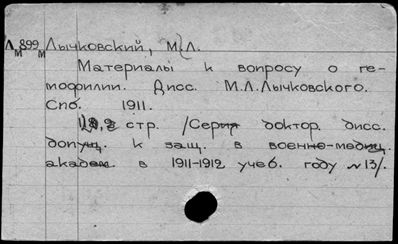 Л м 899 м Лычковский, М.Л.
Материалы к вопросу о ге-
мофилии. Дисс. М.Л.Лычковского.
Спб. 1911.
стр. /Серия доктор. дисс.
допущ. к защ. в военно-медиц.
академ. в 1911-1912 учеб. году №13/.